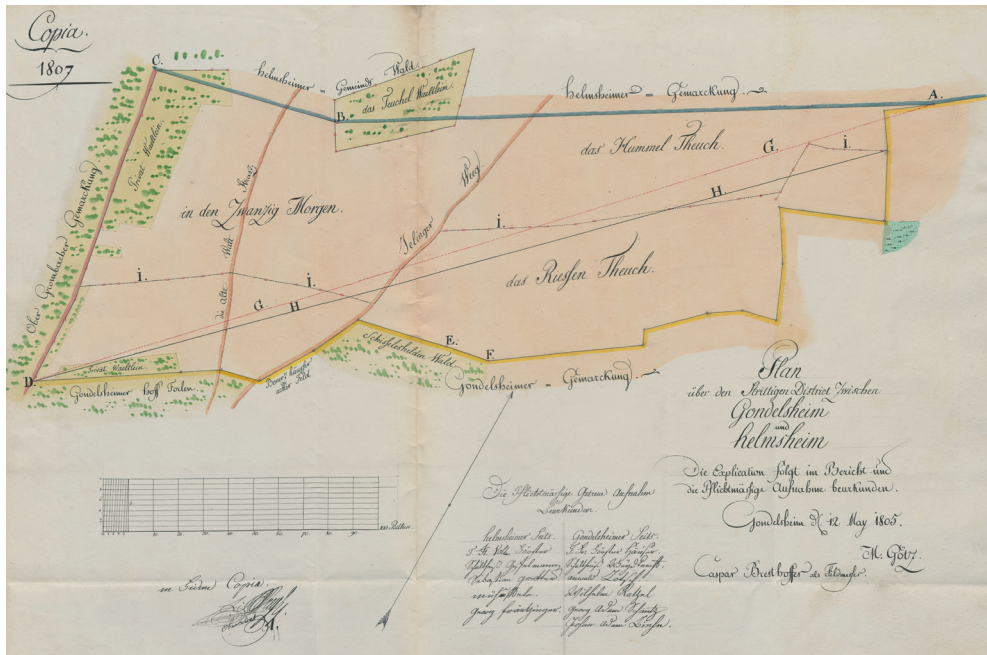 Copia.
1807
C.
helmsheimer = Gemeinds Wald.
das Teuchel Waeltlein.
B.
helmsheimer = Gemarckung.
A.
Ober Grombacher Gemarckung
Privat Waeltlein.
in den Zwanzig Morgen.
die alte Straß
Weeg
das Hummel Theuch.
G.
i.
H.
i.
das Russen Theuch.
i.
i.
G
H
D.
Privat Waeltlein.
Gondelsheimer hoff
Feld.
Wald
E.
F.
Gondelsheimer = Gemarckung.
Plan
über den Strittigen District Zwischen
Gondelsheim
und
helmsheim
Die Explication folgt im Bericht und
die Pflichtmäsige Aufnahme beurkunden.
Gondelsheim d. 12 May 1805.
M. Götz.
Caspar Bresthoffer als Feldmesser.
100 Ruthen.
Die Pflichtmäsige Aufnahm
Beurkunden.
helmsheimer Seits
Gondelsheimer Seits.
Sebastian
Georg
Wilhelm
Georg Adam
Johan Adam
in fidem Copia.